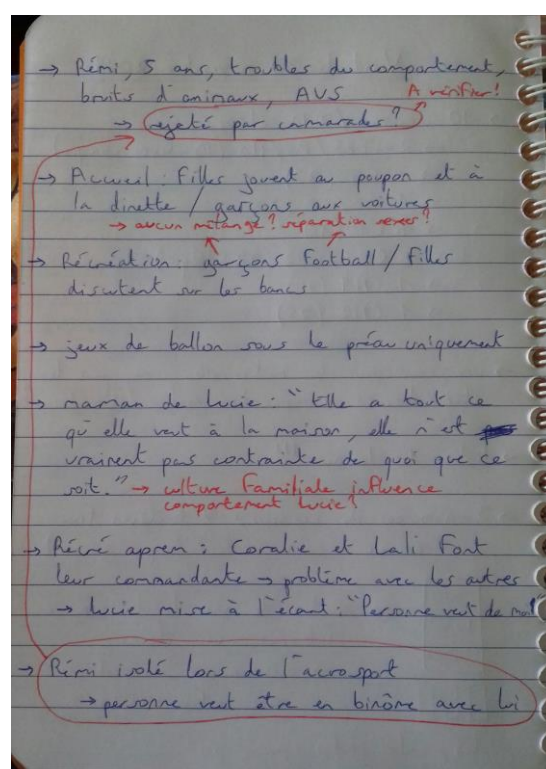 → Rémi, 5 ans, troubles du comportement,
bruits d'animaux, AVS A vérifier!
→ rejeté par camarades?
→ Accueil : filles jouent au poupon et à
la dinette / garçons aux voitures
→ aucun mélange? séparation sexes?
→ Récréation : garçons football / filles
discutent sur les bancs
→ jeux de ballon sous le préau uniquement
→ maman de Lucie : "Elle a tout ce
qu'elle veut à la maison, elle n'est
vraiment pas contrainte de quoi que ce
soit." → culture familiale influence
comportement Lucie?
→ Récré aprem : Coralie et Lali font
leur commandante → problème avec les autres
→ Lucie mise à l'écart : "Personne veut de moi"
→ Rémi isolé lors de l'acrosport
→ personne veut être en binôme avec lui